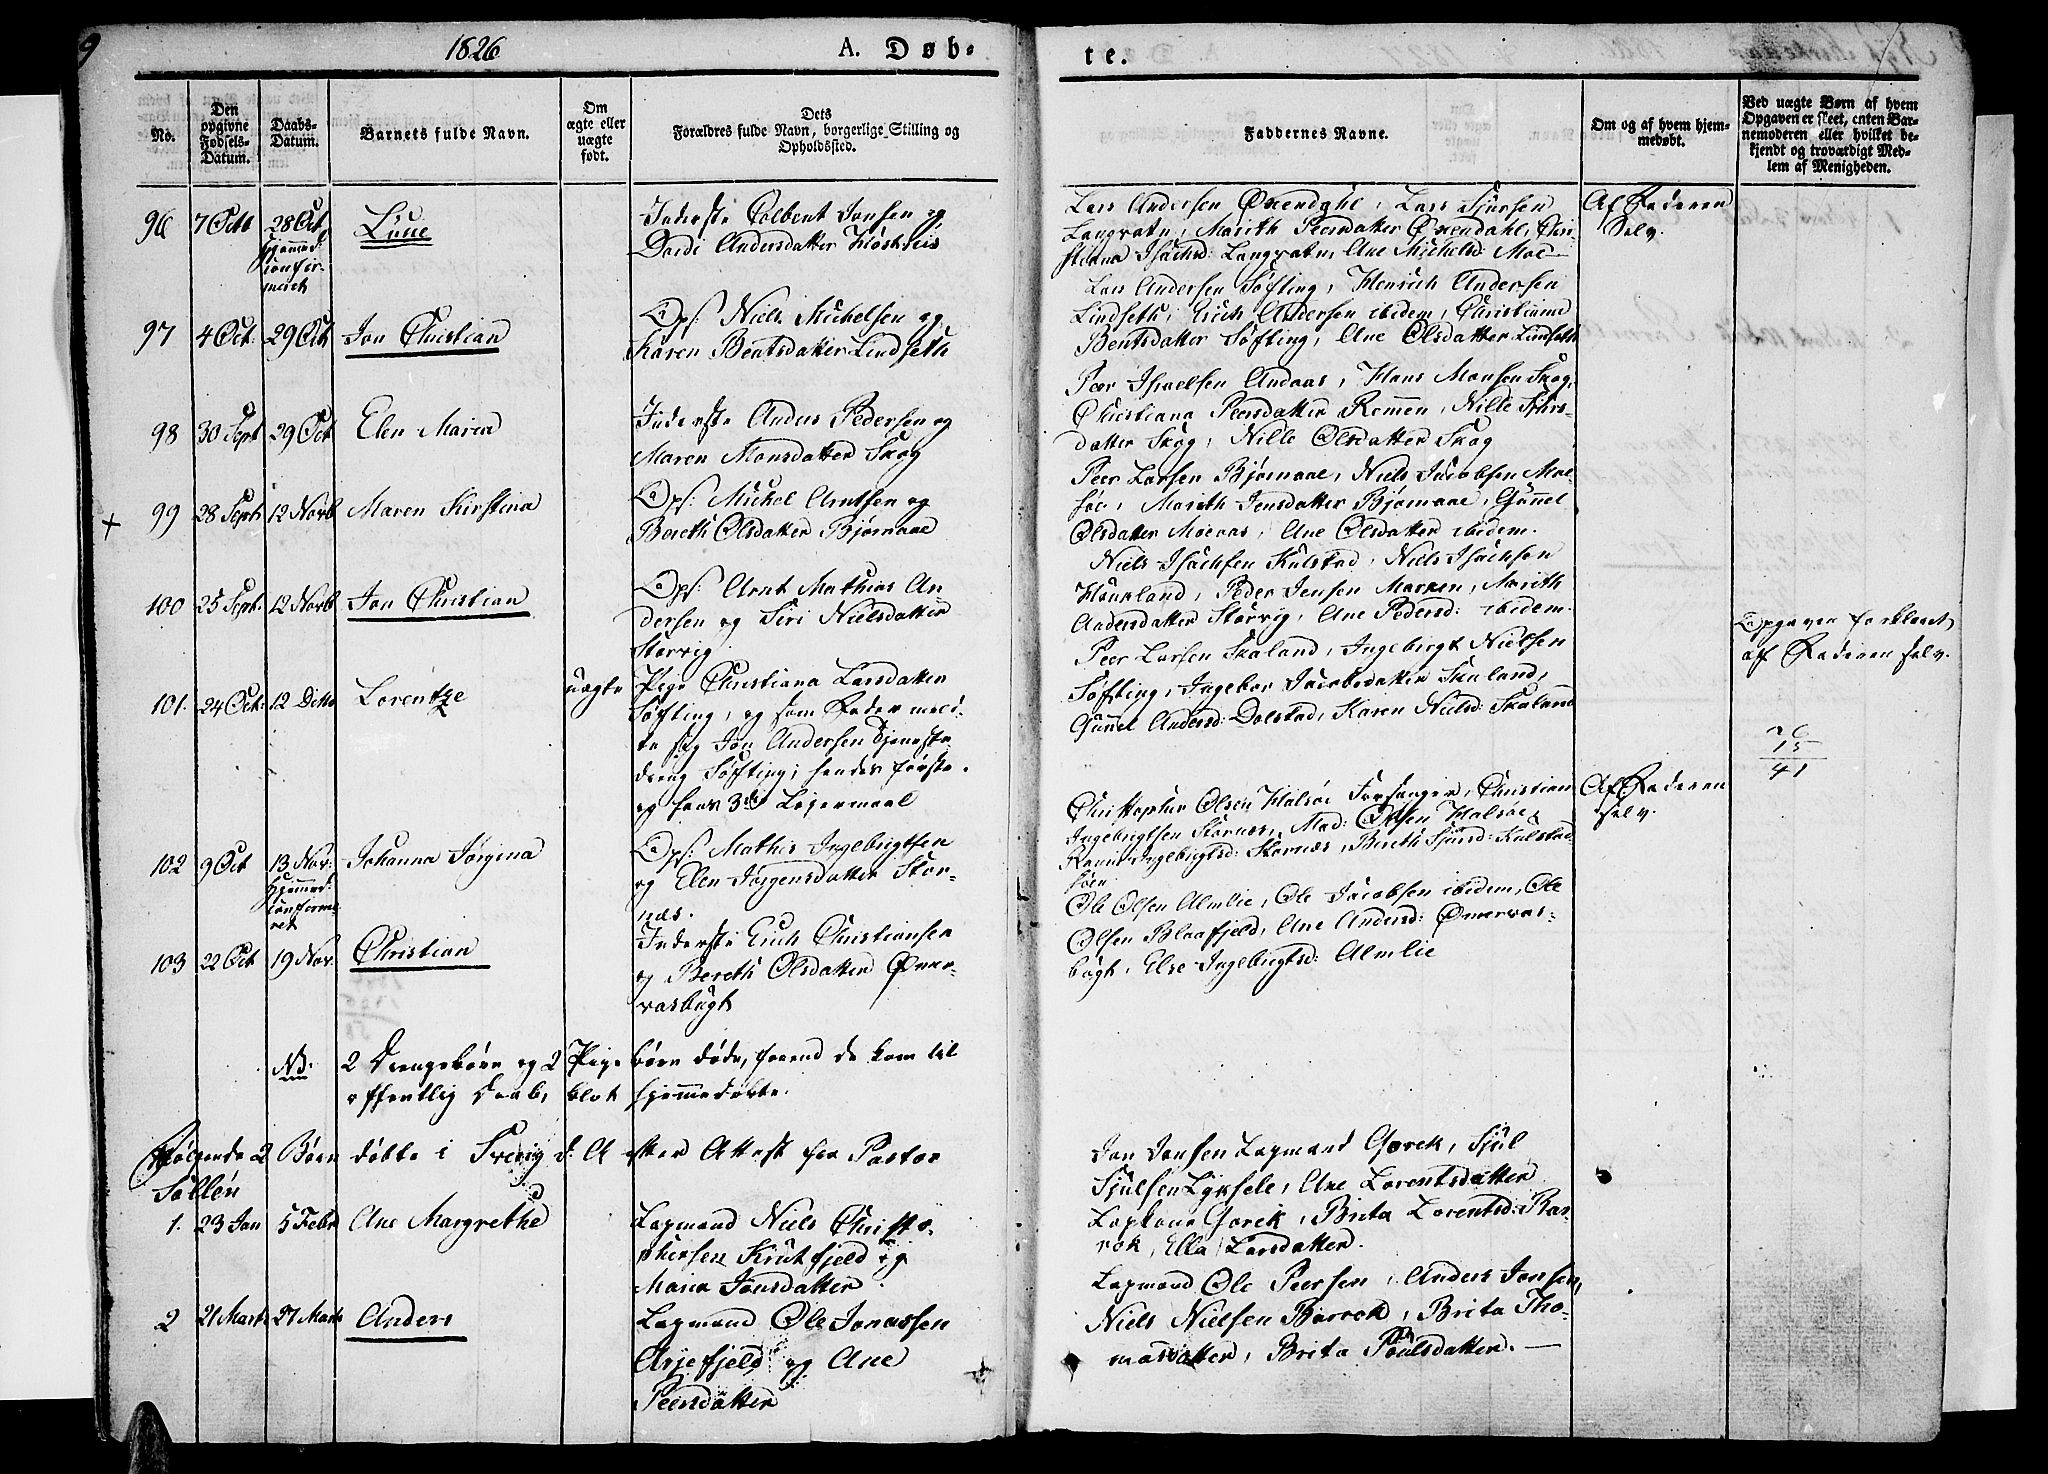 9
1826
A. Døb-
te.
No.
Den opgivne Fødsels-Datum.
Daabs-Datum.
Barnets fulde Navn.
Om ægte eller uægte født.
Dets Forældres fulde Navn, borgerlige Stilling og Opholdssted.
Faddernes Navne.
Om og af hvem hjem-medøbt.
Ved uægte Børn af hvem Opgaven er skeet, enten Bar-nemoderen eller hvilket be-kjendt og troværdigt Med-lem af Menigheden.
96 7 Oct 28 Oct
hjemmed:
confir-
meret
Inderste Colbent Jonsen og
Dordi Andersdatter
Lars Andersen Øxendahl, Lars Sjursen
Langvatn, Marith Peersdatter Øxendahl, Chri-
stianna Isachsd: Langvatn, Ane Michelsd: Moe
Af Faderen
Selv.
97 4 Oct: 29 Oct Jon Christian
Ops: Niels Michelsen og
Karen Bentsdatter Lindseth
Lars Andersen Søfting, Henrich Andersen
Lindseth, Erich Andersen ibidem, Christianna
Bentsdatter Søfting, Ane Olsdatter Lindseth
98 30 Sept 29 Oct Elen Maria
Inderste Anders Pedersen og
Maren Monsdatter Skog
Peer Israelsen Andaas, Hans Monsen Skog,
Christiana Peersdatter Remmen, Nille Sjurs-
datter Skog, Nille Olsdatter Skog
+ 99 28 Sept 12 Novb Maren Kirstina
Ops: Michel Arntsen og
Bereth Olsdatter Bjørnaae
Peer Larsen Bjørnaae, Niels Jacobsen Mae-
søe, Marith Jensdatter Bjørnaae, Gunnel
Olsdatter Moenas, Ane Olsdatter ibidem.
100 25 Sept. 12 Novb Jon Christian
Ops: Arnt Mathias An
dersen og Siri Nielsdatter
Storvig
Niels Isachsen Kulstad, Niels Isachsen
Houkland, Peder Jensen Marken, Marith
Andersdatter Storvig, Ane Pedersd: ibidem.
101. 24 Oct: 12 Ditto Lorentze uægte
Pige Christiana Larsdatter
Søfting, og som Fader meld-
te sig Jon Andersen Tjeneste
dreng Søfting; hendes første
og hans 3die Leiermaal
Peer Larsen Skaland, Ingebrigt Nielsen
Søfting, Ingebor Jacobsdatter Skaland,
Gunnel Andersd: Dolstad, Karen Nielsd: Skaland
Opgaven forklaret
af Faderen selv.
15
41
102 9 Oct 13 Nov:
hjemmed:
confirme-
ret
Johanna Jørgina
Ops: Mathis Ingebrigtsen
og Elen Jørgensdatter Stor-
næs.
Christopher Olsen Halsøe Forsanger, Christian
Ingebrigtsen Stornæs, Mad: Olsen Halsøe,
Ingebrigtsd: Stornæs, Bereth Sjursd: Kulstad-
søen
Af Faderen
selv.
103 22 Oct 19 Nov. Christian
Inderste Erich Christiansen
og Bereth Olsdatter Ømer-
vasbugt
Ole Olsen Almlie, Ole Jacobsen ibidem, Ole
Olsen Blaafjeld, Ane Andersd: Ømervas-
bugt, Else Ingebrigtsd: Almlie
NB. 2 Drengebørn og 2 Pige børn døde, førend de kom til
offentlig Daab, blot hjemmedøbte.
Følgende 2 Børn døbte i Sverig d: A efter Attest fra Pastor
Sollén
1. 23 Jan 5 Febr Ane Margrethe
Lapmand Niels Christo-
phersen Krutfjeld og
Maria Jonsdatter
Jon Jonsen Lapmand Gorek, Sjul
Sjulsen Lyksele, Ane Lorentsdatter
Lapkone Gorek, Brita Lorentsd: Bar-
rok, Ella Larsdatter.
2 21 Marts 27 Marts Anders
Lapmand Ole Jonassen
Arjefjeld og Ane
Peersdatter
Lapmand Ole Peersen, Anders Jonsen,
Niels Nielsen Barrok, Brita Tho-
masdatter, Brita Poulsdatter.